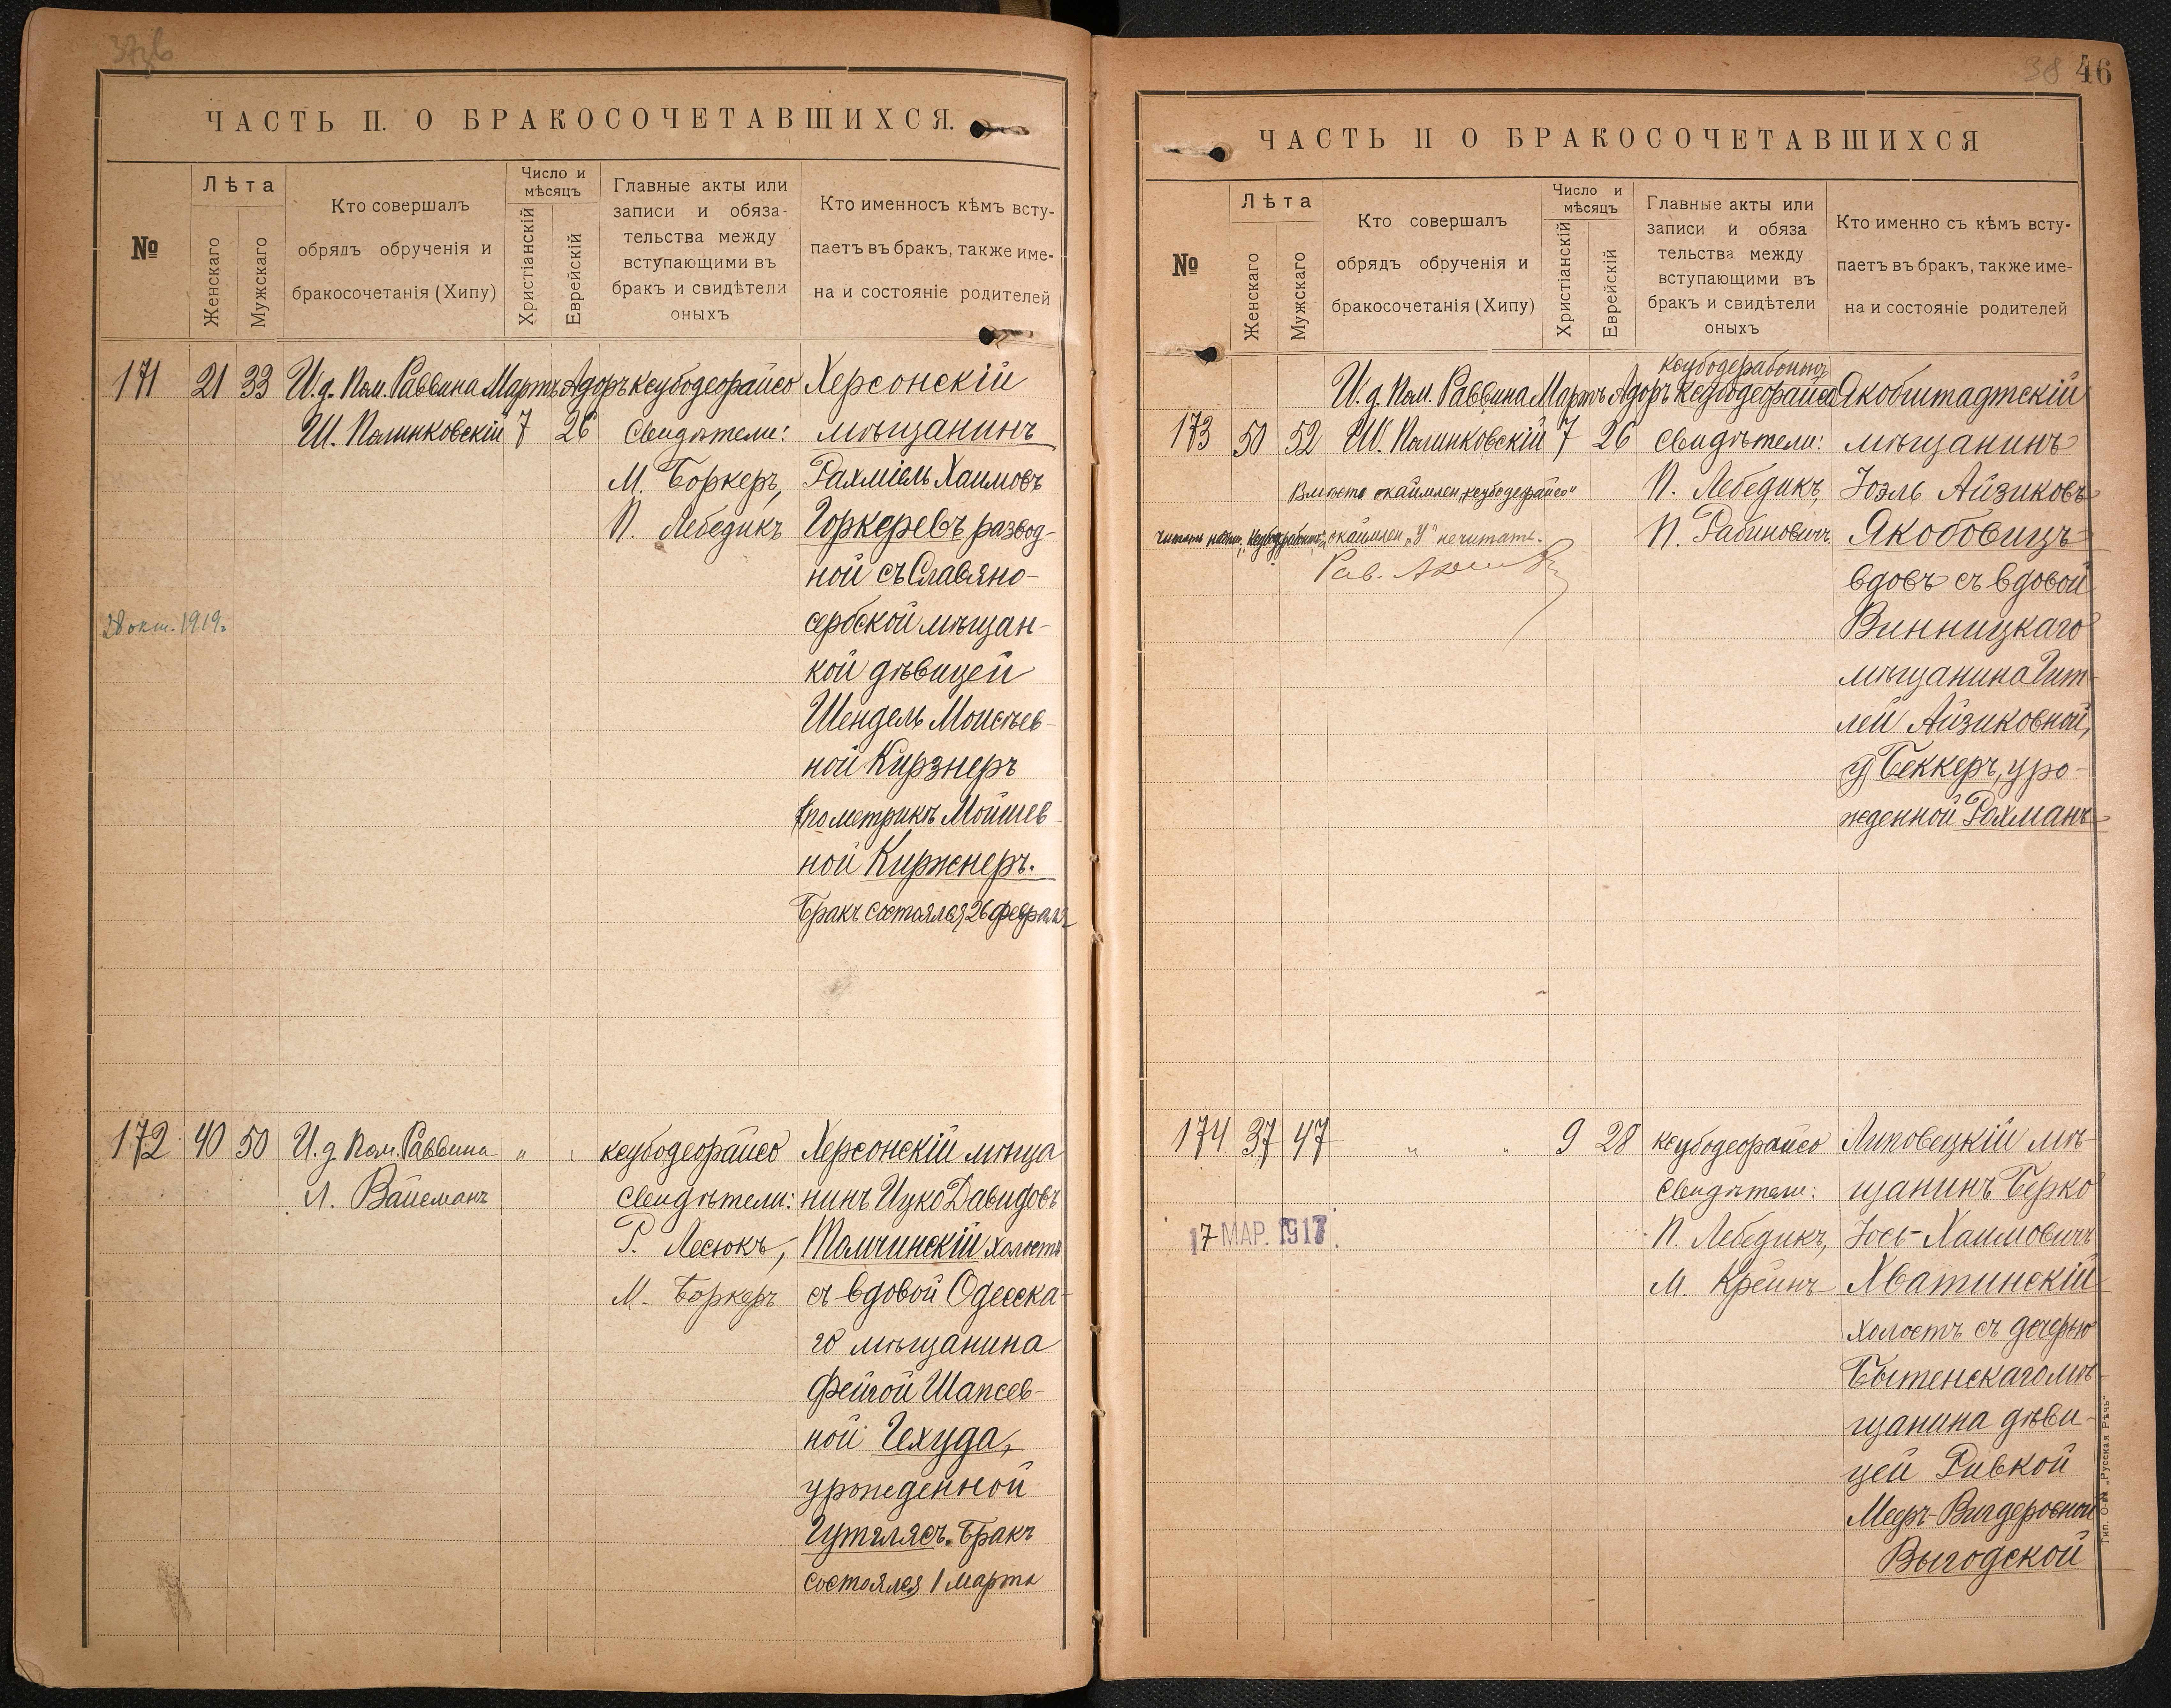 46
38
ЧАСТЬ II. О БРАКОСОЧЕТАВШИХСЯ.
№
Лѣта
Женскаго
Мужскаго
Кто совершалъ
обрядъ обрученія и
бракосочетанія (Хипу)
Число и
мѣсяцъ
Христіанскій
Еврейскій
Главные акты или
записи и обяза-
тельства между
вступающими въ
бракъ и свидѣтели
оныхъ
Кто именносъ кѣмъ всту-
паетъ въ бракъ, также име-
на и состояніе родителей
171
21
33
И.д. Пом. Раввина
Ш. Полинковскій
Мартъ
7
Адоръ
26
ксубодеорайсо
Свидѣтели:
М. Боркеръ,
П. Лебедикъ
Херсонскій
мѣщанинъ
Рахміель Хаимовъ
Горкеревъ развод-
ной съ Славяно-
сербской мѣщан-
кой дѣвицей
Шендель Моисѣев-
ной Кирзнеръ
(по метрикѣ Мойшев-
ной Киржнеръ.
Бракъ состоялся 26 февраля
28 окт. 1919г.
172
40
50
И.д. Пом. Раввина
Л. Вайсманъ
"
ксубодеорайсо
Свидѣтели:
Г. Лесюкъ,
М. Боркеръ
Херсонскій мѣща
нинъ Ицко Давидовъ
Толчинскій холостъ
съ вдовой Одесска-
го мѣщанина
Фейгой Шапсев-
ной Чехуда,
урожденной
Гутглясъ. Бракъ
состоялся 1 марта
ЧАСТЬ II О БРАКОСОЧЕТАВШИХСЯ
№
Лѣта
Женскаго
Мужскаго
Кто совершалъ
обрядъ обрученія и
бракосочетанія (Хипу)
Число и
мѣсяцъ
Христіанскій
Еврейскій
Главные акты или
записи и обяза
тельства между
вступающими въ
бракъ и свидѣтели
оныхъ
Кто именно съ кѣмъ всту-
паетъ въ бракъ, также име-
на и состояніе родителей
173
50
52
И.д. Пом. Раввина
Ш. Полинковскій
Мартъ
7
Адоръ
26
ксубодерабононъ
ксубодеорайсо
Свидѣтели:
П. Лебедикъ,
П. Рабиновичъ.
Якобштадтскій
мѣщанинъ
Іоэль Айзиковъ
Якобовицъ
вдовъ съ вдовой
Винницкаго
мѣщанина Гит-
лей Айзиковной,
у Беккеръ, уро-
жденной Рохманъ
Вмѣсто окаймлен. „ксубодеорайсо"
окаймлен „У" не читать.
Рав.
174
37
47
"
"
9
28
ксубодеорайсо
Свидѣтели:
П. Лебедикъ,
М. Крейнъ
Липовецкій мѣ-
щанинъ Берко
Іось-Хаимовичъ
Хватинскій
холостъ съ дочерью
Бытенскаго мѣ-
щанина дѣви-
цей Ривкой
Мееръ-Вигдоровной
Выгодской
17 МАР. 1917
Тип. О-ва „Русская Рѣчь"